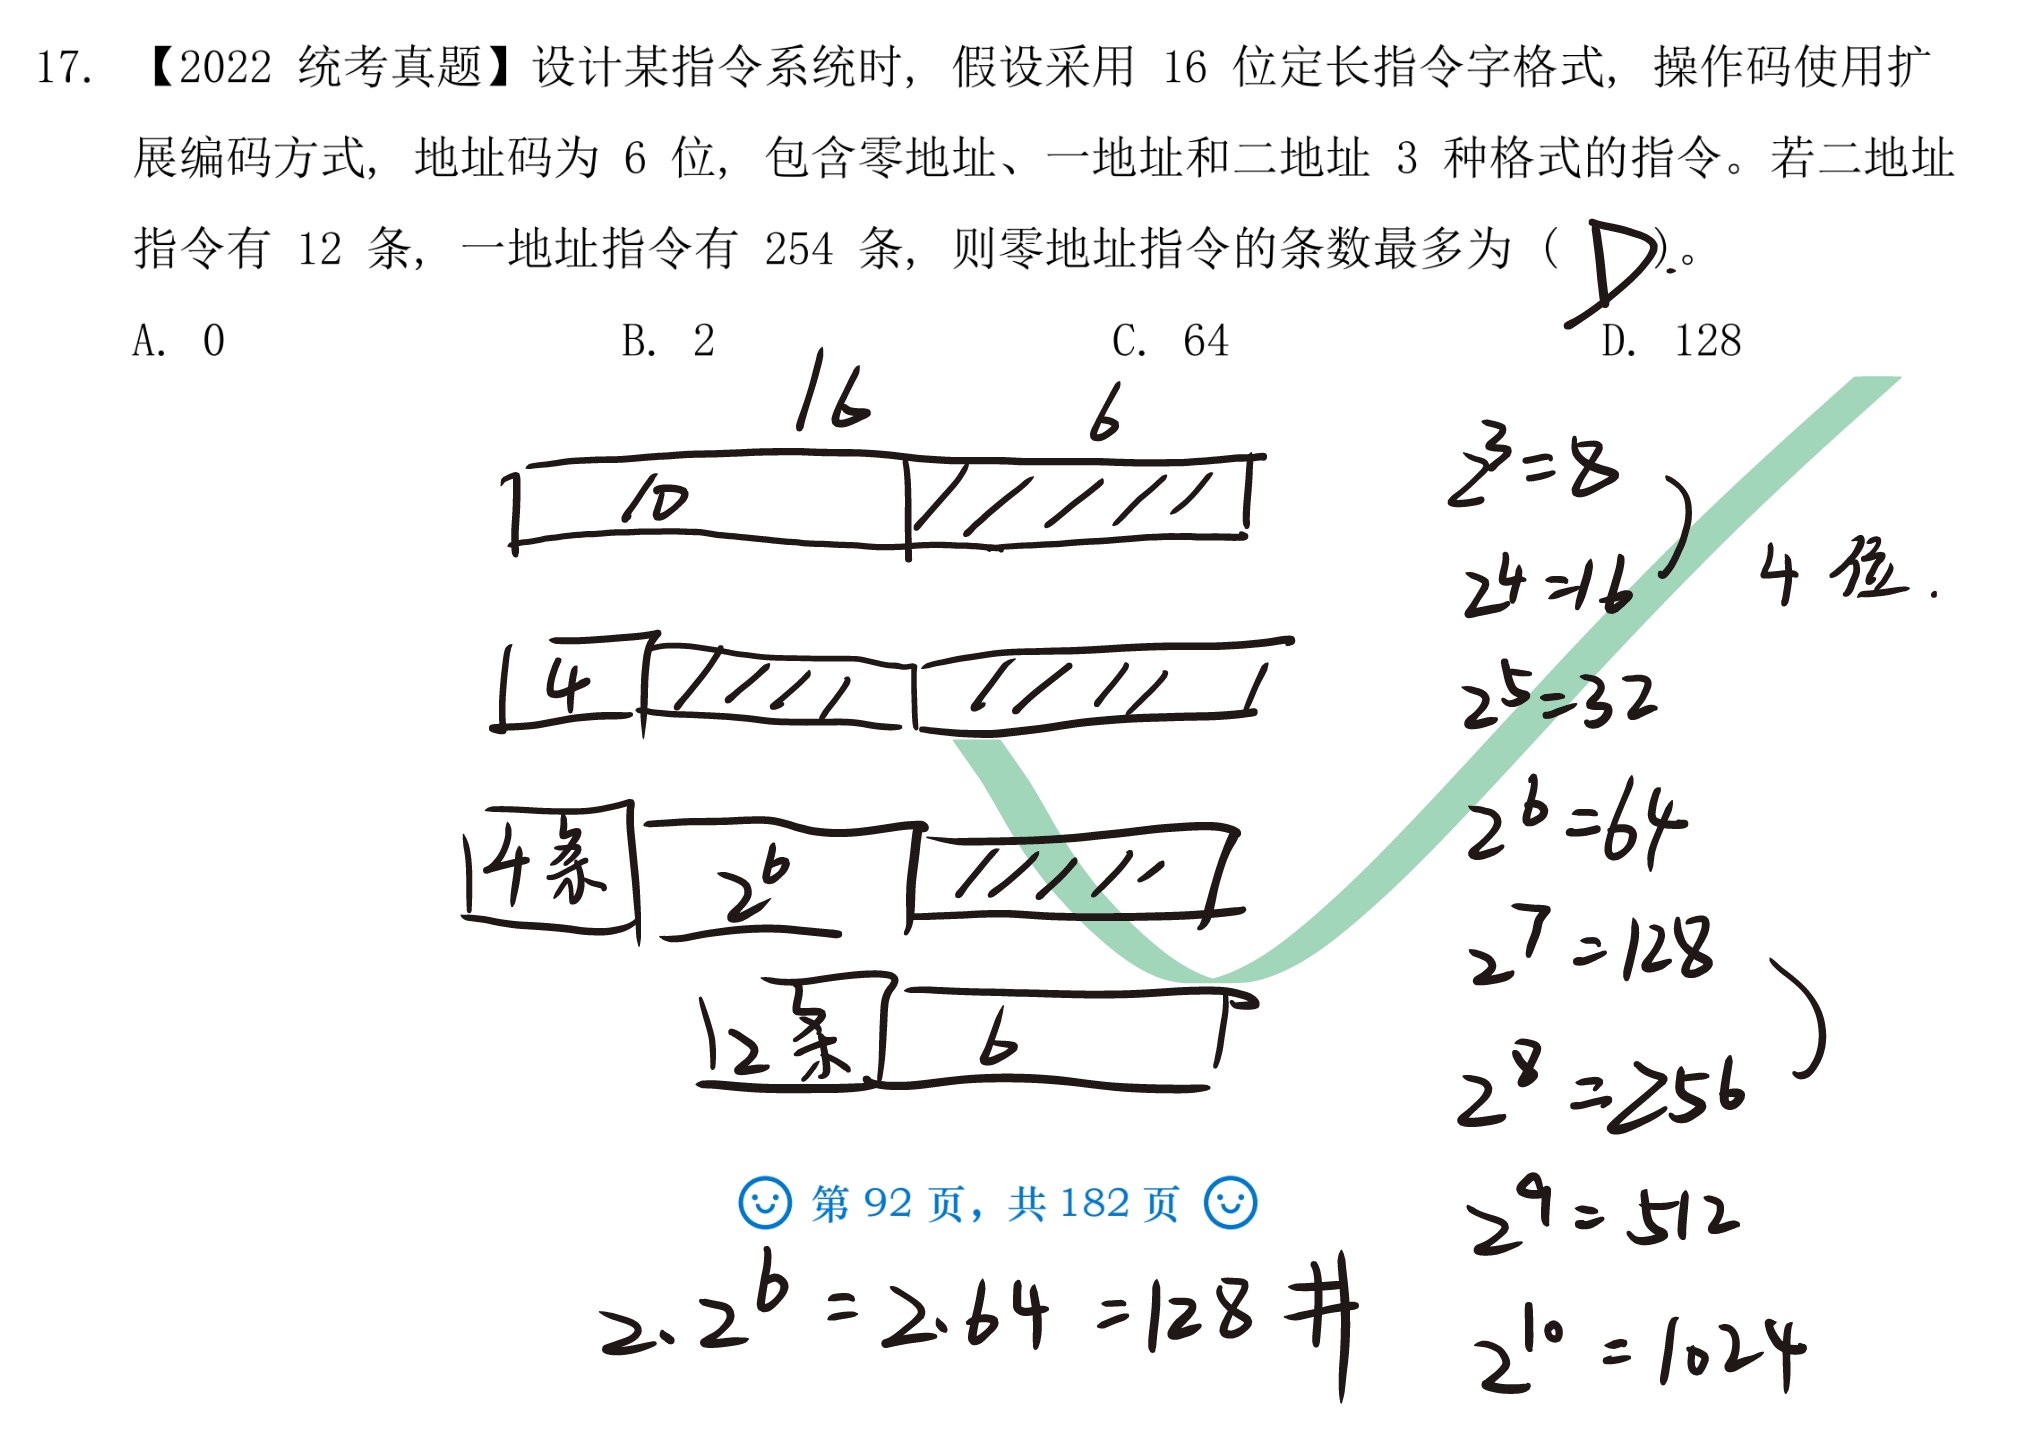 17. 【2022 统考真题】设计某指令系统时, 假设采用 16 位定长指令字格式, 操作码使用扩
展编码方式, 地址码为 6 位, 包含零地址、一地址和二地址 3 种格式的指令。若二地址
指令有 12 条, 一地址指令有 254 条, 则零地址指令的条数最多为 ( D )。
A. 0 B. 2 C. 64 D. 128
16 6
10
4
4条 2⁶
2条 6
2³=8
2⁴=16 4 位.
2⁵=32
2⁶=64
2⁷=128
2⁸=256
2⁹=512
2¹⁰=1024
第 92 页, 共 182 页
2.2⁶=2.64=128 #